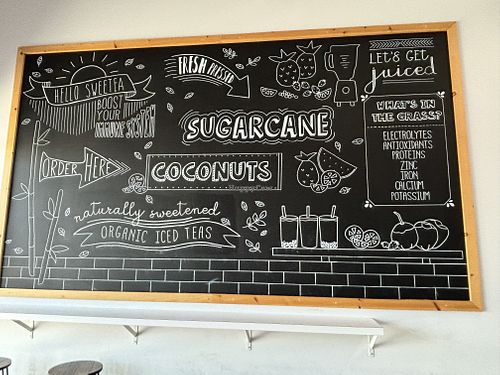 HELLO SWEETEA
BOOST
YOUR
IMMUNE SYSTEM
FRESH PRESSED
LET'S GET
juiced
SUGARCANE
WHAT'S IN
THE GRASS?
ELECTROLYTES
ANTIOXIDANTS
PROTEINS
ZINC
IRON
CALCIUM
POTASSIUM
ORDER HERE
COCONUTS
naturally sweetened
ORGANIC ICED TEAS